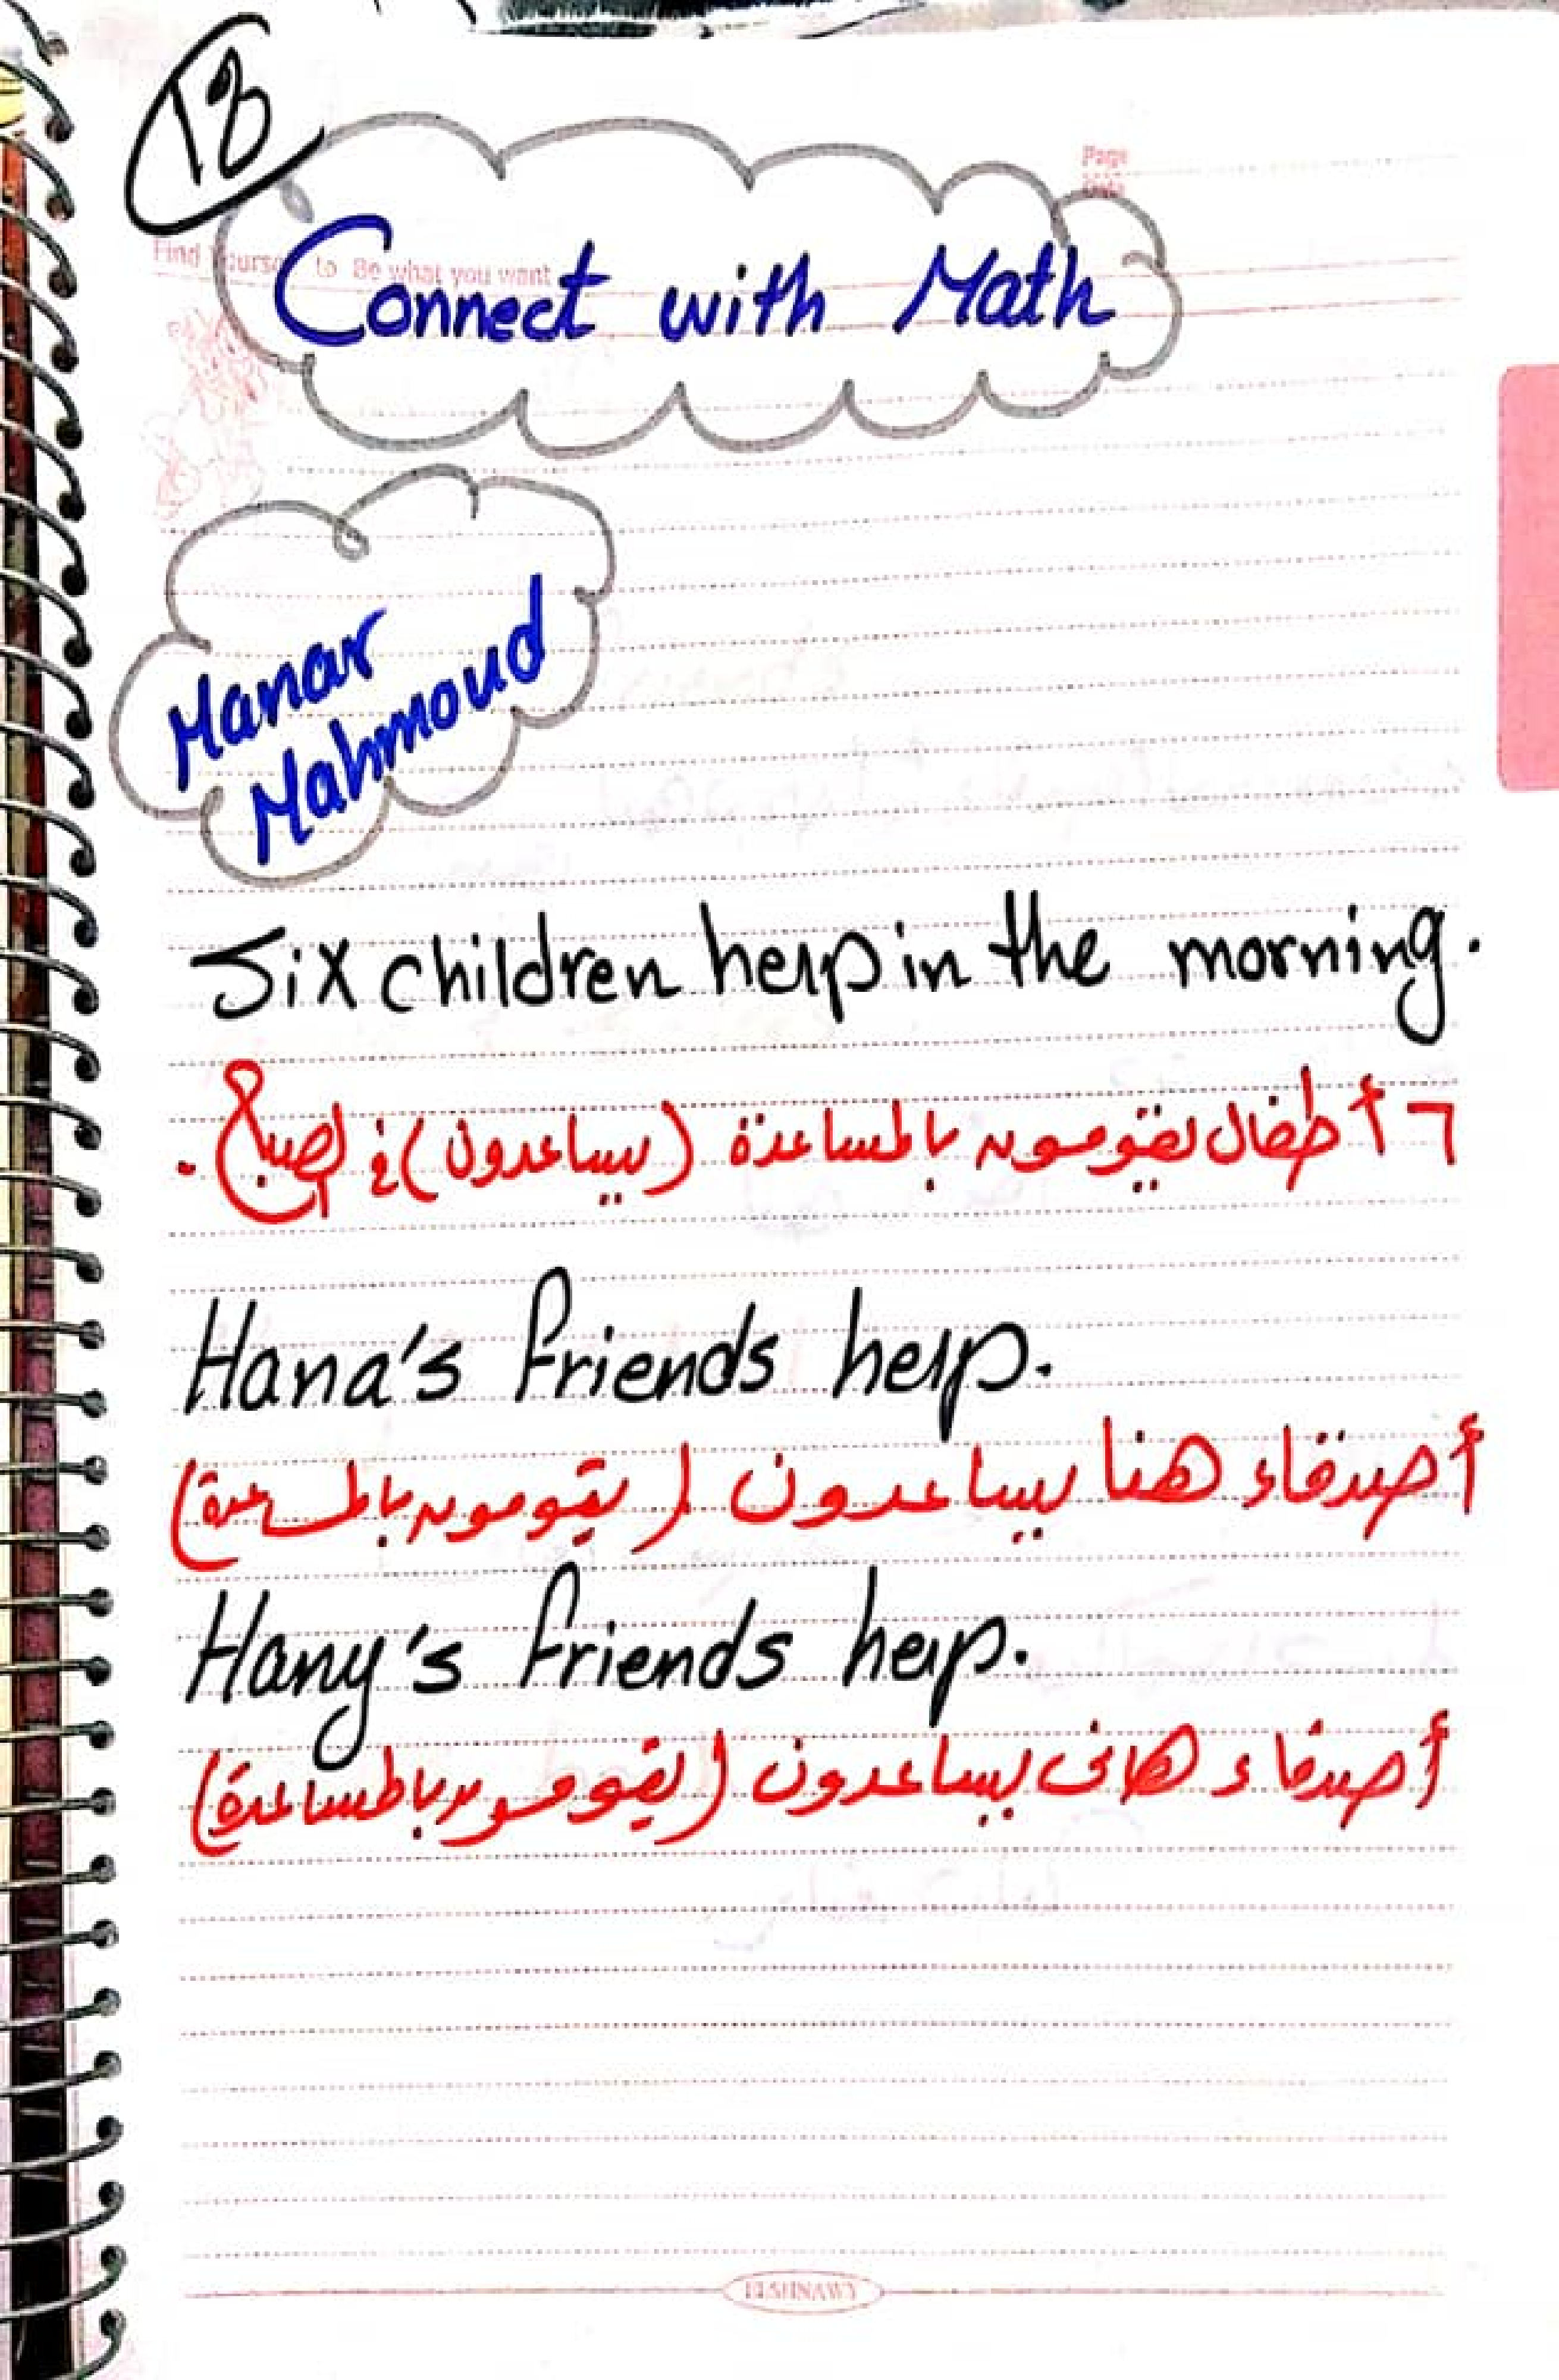 Page
Date
Find Yourself to Be what you want
Connect with Math
Manar
Mahmoud
Six children help in the morning.
٦ أطفال يقومون بالمساعدة (يساعدون) في الصباح.
Hana's friends help.
أصدقاء هنا يساعدون (يقومون بالمساعدة)
Hany's friends help.
أصدقاء هانى يساعدون (يقومون بالمساعدة)
ELSHNAWY